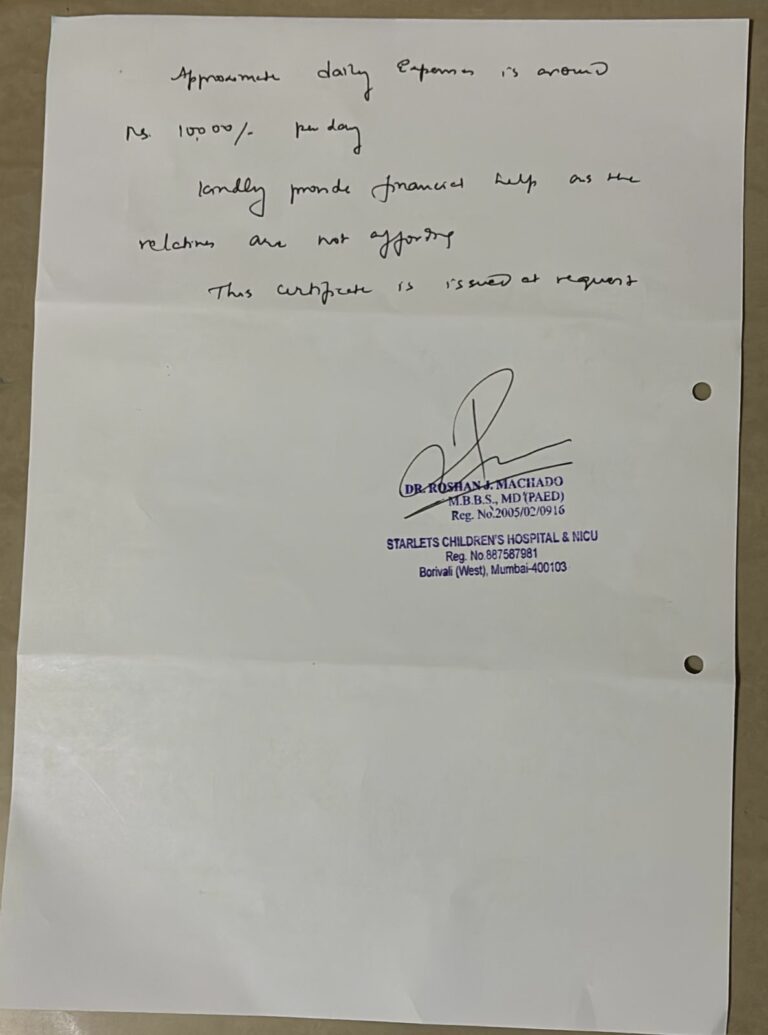 Approximate daily Expenses is around
Rs. 10000/- per day
kindly provide financial help as the
relatives are not affording
This certificate is issued at request
DR. ROSHAN J. MACHADO
M.B.B.S., MD (PAED)
Reg. No.2005/02/0916
STARLETS CHILDREN'S HOSPITAL & NICU
Reg. No.887587981
Borivali (West), Mumbai-400103